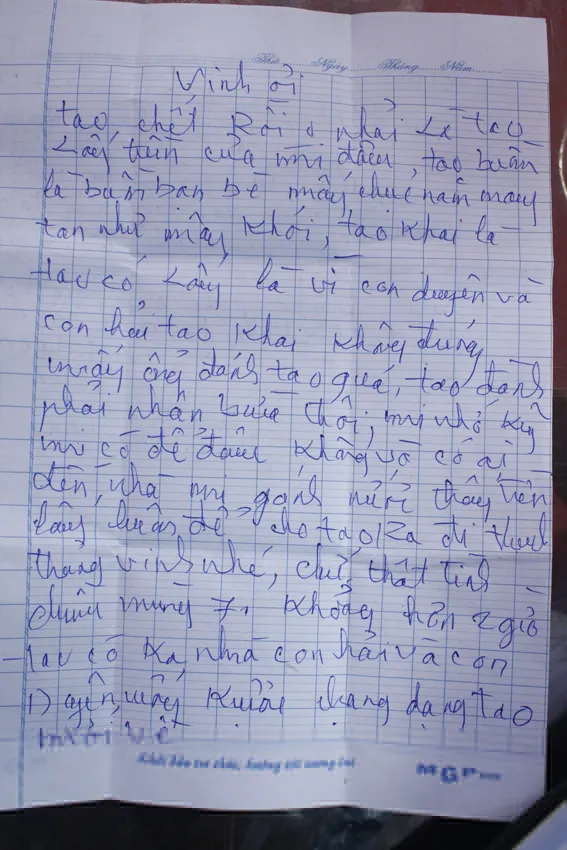 Thứ Ngày Tháng Năm
Vinh ơi
tao chết Rồi o nhải Là tao
Lấy tiền của mi đâu, tao buồn
là buồn bạn bè mấy chục năm nay
tan như mây khói, tao khai là
tao có Lấy là vì con duyên và
con hải tao khai không đúng
mấy ông đánh tao quá, tao đành
phải nhận bừa thôi, mi nhớ kỹ
mi có để đâu không và có ai
đến nhà mi gánh nước thấy tiền
lấy luôn để cho tao Ra đi
thằng vinh nhé, chứ thật tình
chiều mùng 7, không hơn 2 giờ
- tao có Ra nhà con hải và con
Duyên, uống rượu tao
mới về
MGP